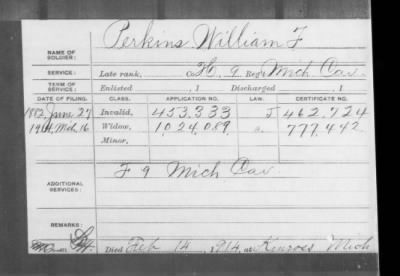 Perkins William F
NAME OF SOLDIER:
SERVICE: Late rank, Co. H, 9 Reg't Mich Cav.
TERM OF SERVICE: Enlisted , 1 Discharged , 1
DATE OF FILING. CLASS. APPLICATION NO. LAW. CERTIFICATE NO.
1882 June 27 Invalid, 453.333 J 462.724
1914 Mch. 16 Widow, 1.024.089 777.442
Minor,
F 9 Mich Cav
ADDITIONAL SERVICES:
REMARKS:
Died Feb 14, 1914, at Kinross Mich